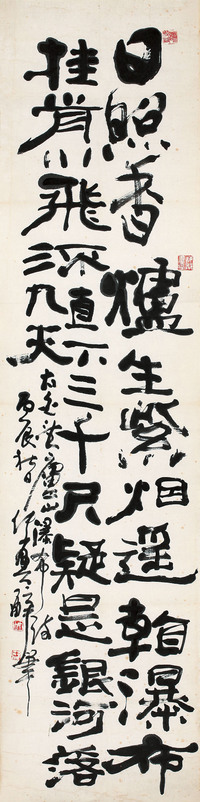 日照香爐生紫烟遥看瀑布
挂前川飛流直下三千尺疑是銀河落
九天
太白廬山瀑布詩
丙辰秋日